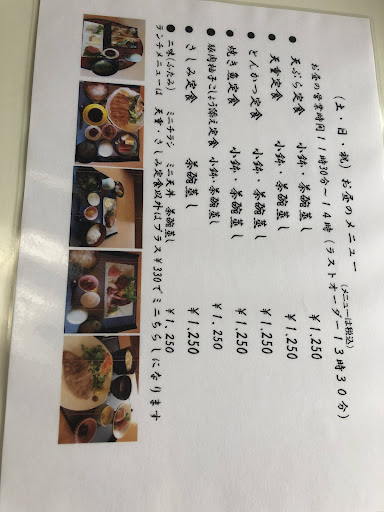 (土・日・祝) お昼のメニュー (メニューは税込)
お昼の営業時間11時30分〜14時 (ラストオーダー13時30分)
● 天ぷら定食 小鉢・茶碗蒸し ¥1.250
● 天重定食 小鉢・茶碗蒸し ¥1.250
● とんかつ定食 小鉢・茶碗蒸し ¥1.250
● 焼き魚定食 小鉢・茶碗蒸し ¥1.250
● 豚肉柚子こしょう添え定食 小鉢・茶碗蒸し ¥1.250
● さしみ定食 茶碗蒸し ¥1.250
● 二味(ふたみ) ミニチラシ ミニ天丼 茶碗蒸し ¥1.250
ランチメニューは 天重・さしみ定食以外はプラス¥330でミニちらしになります